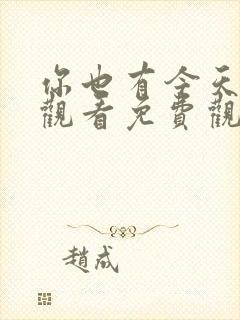 你也有今天
觀看免費觀
趙成